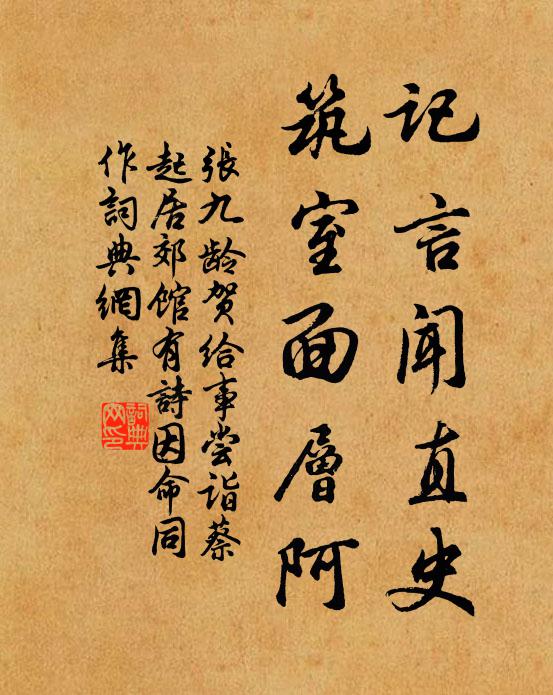 记言闻直史
筑室面層阿
張九龄贺给事尝诣蔡
起居郊馆有詩因命同
作詞典網集
詞典网印